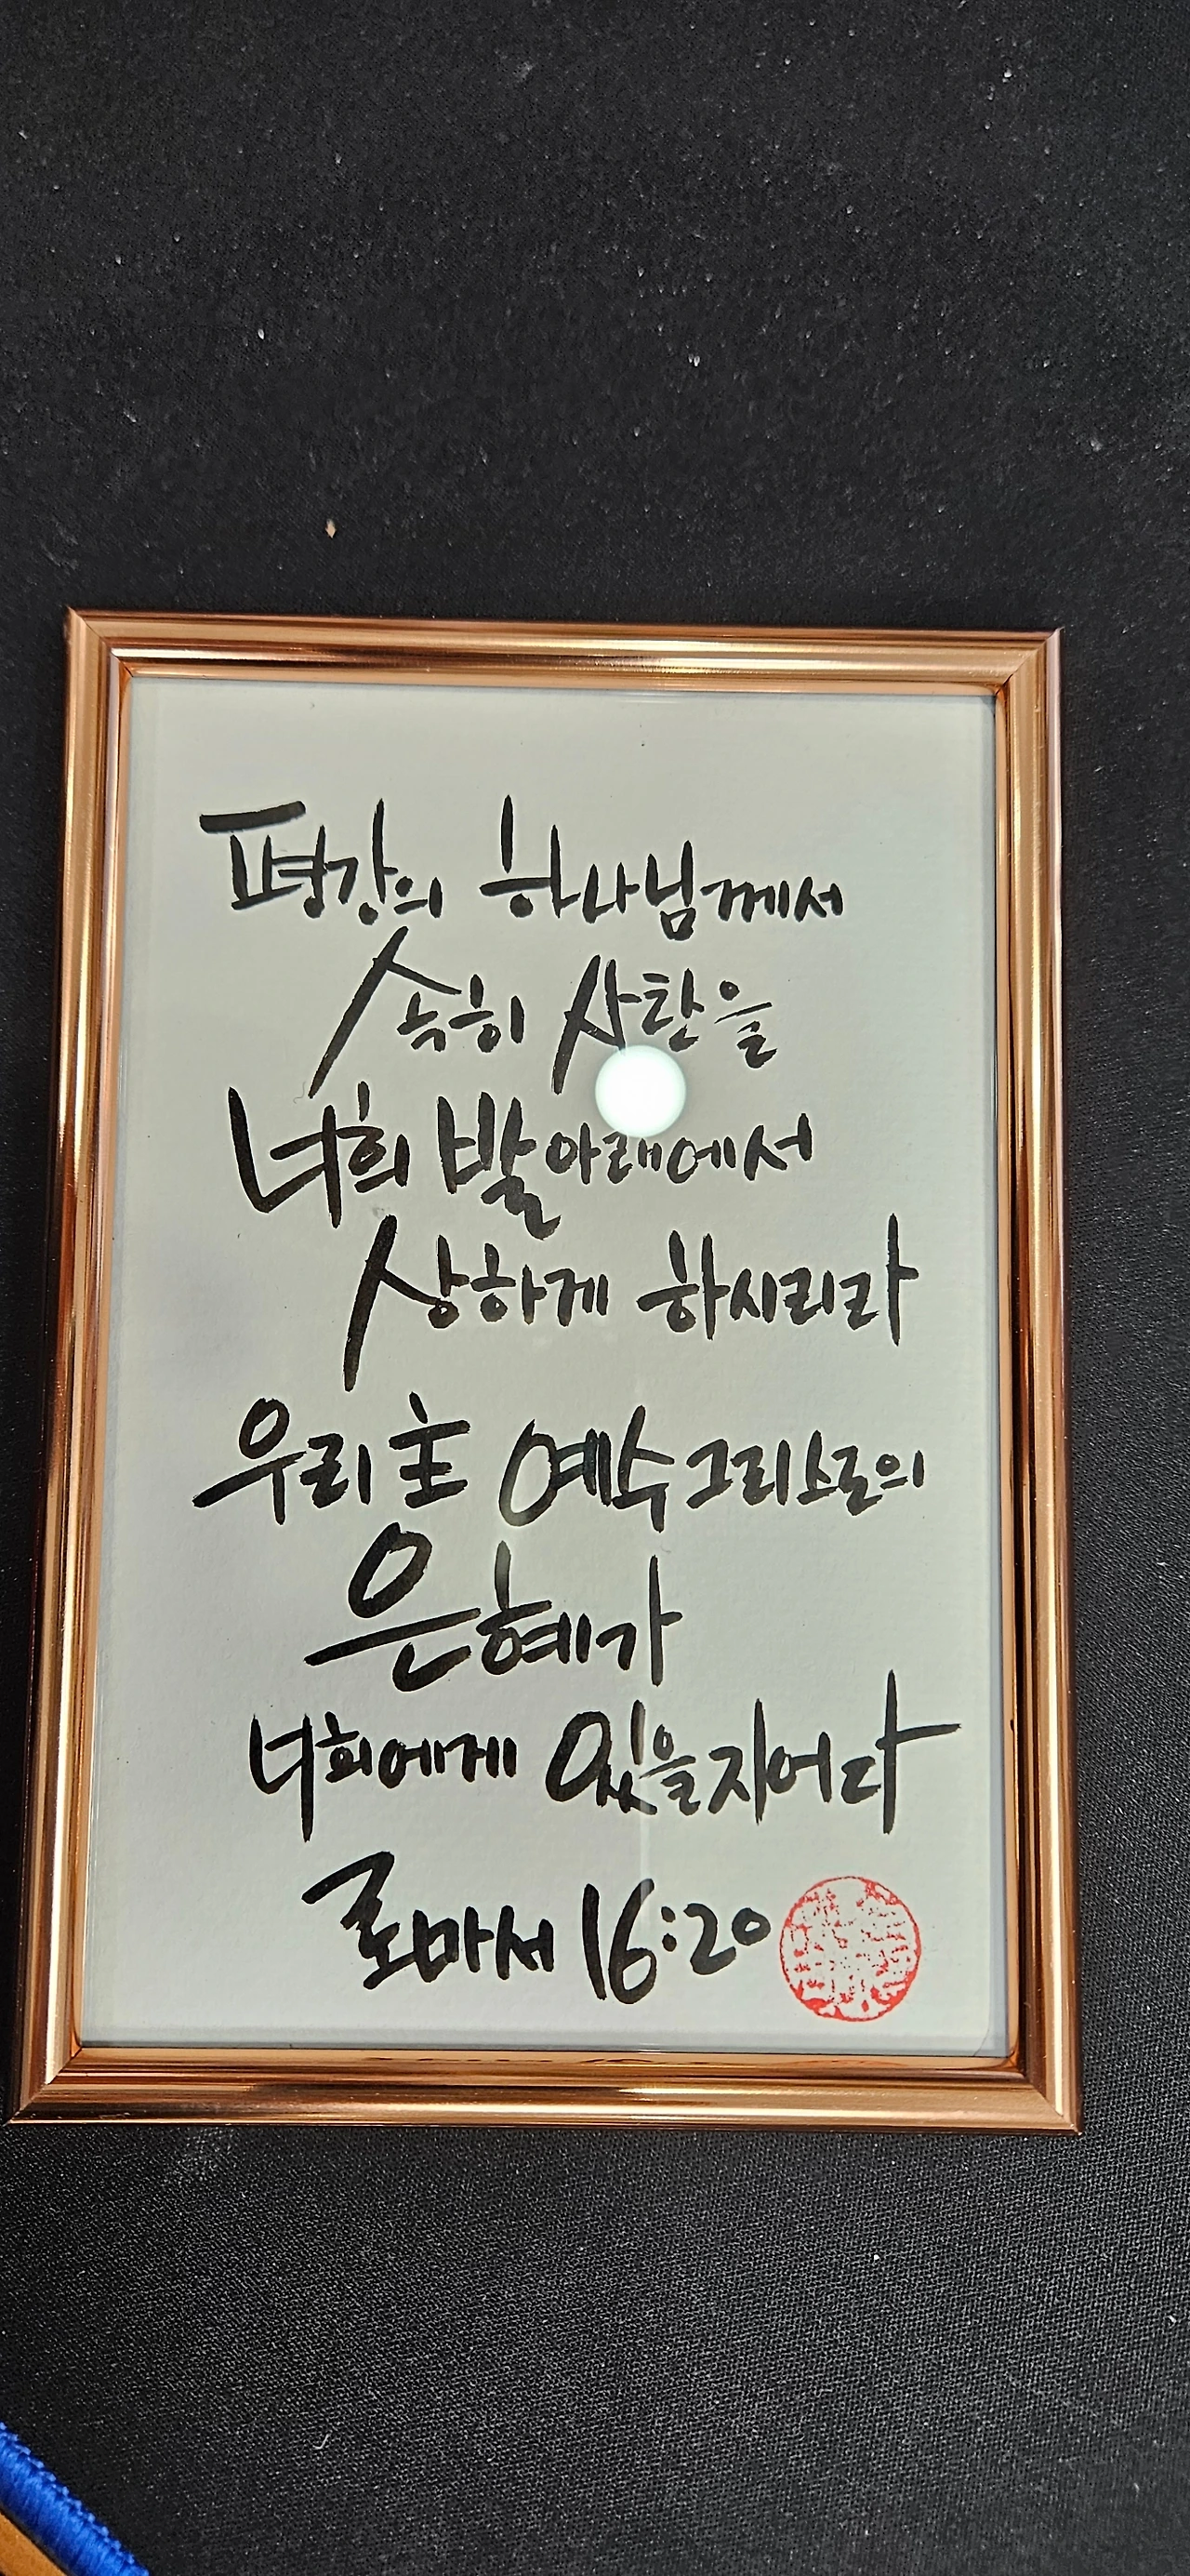 평강의 하나님께서
속히 사탄을
너희 발 아래에서
상하게 하시리라
우리 主 예수 그리스도의
은혜가
너희에게 있을지어다
로마서 16:20